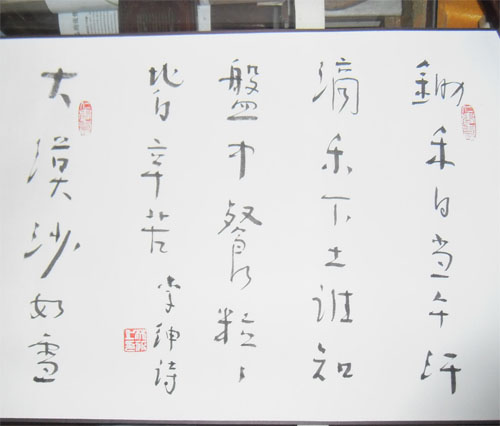 鋤禾日当午汗
滴禾下土谁知
盤中餐粒々
皆辛苦 李绅诗
大漠沙如雪